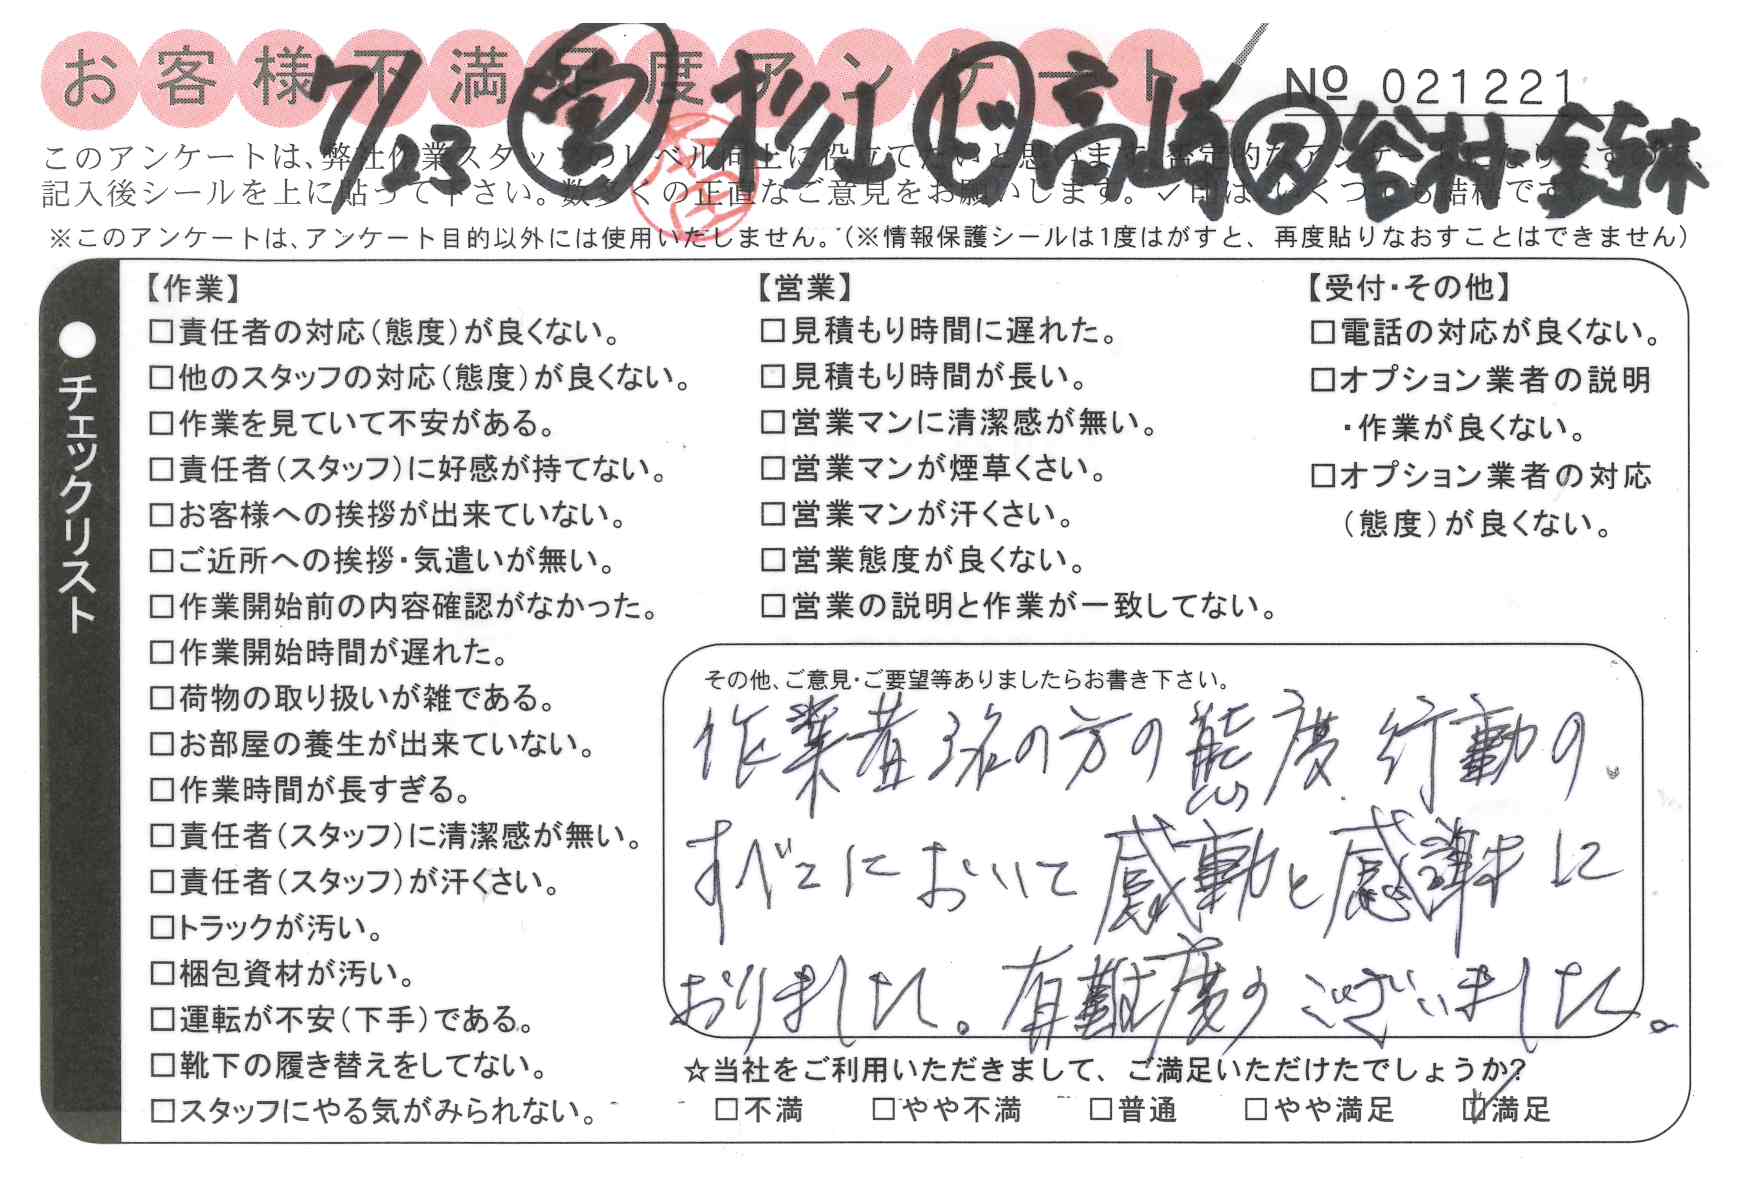 お客様不満足度アンケート
No 021221
7/23 営 杉山 ド 高崎 ス 谷村 鈴木
このアンケートは、弊社作業スタッフのレベル向上に役立てたいと思います。
記入後シールを上に貼って下さい。数多くの正直なご意見をお願いします。✓印は、いくつでも結構です。
※このアンケートは、アンケート目的以外には使用いたしません。(※情報保護シールは1度はがすと、再度貼りなおすことはできません)
●チェックリスト
【作業】
□責任者の対応(態度)が良くない。
□他のスタッフの対応(態度)が良くない。
□作業を見ていて不安がある。
□責任者(スタッフ)に好感が持てない。
□お客様への挨拶が出来ていない。
□ご近所への挨拶・気遣いが無い。
□作業開始前の内容確認がなかった。
□作業開始時間が遅れた。
□荷物の取り扱いが雑である。
□お部屋の養生が出来ていない。
□作業時間が長すぎる。
□責任者(スタッフ)に清潔感が無い。
□責任者(スタッフ)が汗くさい。
□トラックが汚い。
□梱包資材が汚い。
□運転が不安(下手)である。
□靴下の履き替えをしてない。
□スタッフにやる気がみられない。
【営業】
□見積もり時間に遅れた。
□見積もり時間が長い。
□営業マンに清潔感が無い。
□営業マンが煙草くさい。
□営業マンが汗くさい。
□営業態度が良くない。
□営業の説明と作業が一致してない。
【受付・その他】
□電話の対応が良くない。
□オプション業者の説明
・作業が良くない。
□オプション業者の対応
(態度)が良くない。
その他、ご意見・ご要望等ありましたらお書き下さい。
作業者3名の方の態度 行動の
すべてにおいて感動と感謝に
おりました。有難度うございました。
☆当社をご利用いただきまして、ご満足いただけたでしょうか?
□不満 □やや不満 □普通 □やや満足 ☑満足